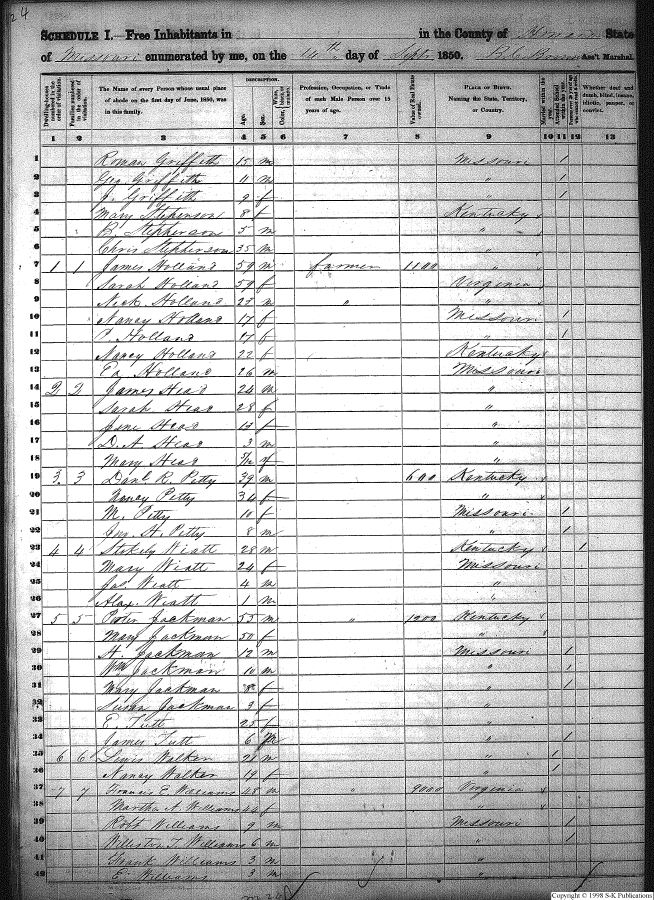 24
SCHEDULE I.—Free Inhabitants in in the County of Howard State
of Missouri enumerated by me, on the 14th day of Septr 1850. Ass't Marshal.
Dwelling-houses numbered in the order of visitation.
Families numbered in the order of visitation.
The Name of every Person whose usual place of abode on the first day of June, 1850, was in this family.
DESCRIPTION.
Age.
Sex.
Color, White, black, or mulatto.
Profession, Occupation, or Trade of each Male Person over 15 years of age.
Value of Real Estate owned.
PLACE OF BIRTH. Naming the State, Territory, or Country.
Married within the year.
Attended School within the year.
Whether deaf and dumb, blind, insane, idiotic, pauper, or convict.
1 2 3 4 5 6 7 8 9 10 11 12 13
1 Roman Griffith 15 m Missouri 1
2 Geo Griffith 11 m " 1
3 J. Griffith 9 f " 1
4 Mary Stephenson 8 f Kentucky
5 B. Stephenson 5 m "
6 Chris Stephenson 35 m "
7 1 1 James Holland 59 m farmer 1100 "
8 Sarah Holland 59 f Virginia
9 Nick. Holland 23 m " "
10 Nancy Holland 17 f Missouri 1
11 P. Holland 17 f " 1
12 Nancy Holland 22 f Kentucky
13 Ed Holland 26 m Missouri
14 2 2 James Head 24 m "
15 Sarah Head 28 f "
16 Jane Head f "
17 D. A Head 3 m "
18 Mary Head f "
19 3 3 Danl R. Petty 39 m 600 Kentucky
20 Nancy Petty 34 f "
21 M. Petty 10 f Missouri 1
22 Jno. H. Petty 8 m " 1
23 4 4 Stokely Wiatt 28 m Kentucky 1
24 Mary Wiatt 24 f Missouri
25 Jas Wiatt 4 m "
26 Alex. Wiatt 1 m "
27 5 5 Porter Jackman 55 m " 1200 Kentucky
28 Mary Jackman 50 f "
29 H. Jackman 12 m Missouri 1
30 Wm Jackman 10 m " 1
31 Mary Jackman 8 f " 1
32 Susan Jackman 9 f "
33 E. Tutt 25 f "
34 James Tutt 6 m " 1
35 6 6 Lewis Walker 21 m " 1
36 Nancy Walker 19 f " 1
37 7 7 Francis E. Williams 48 m " 9000 Virginia
38 Martha A. Williams 44 f "
39 Robt Williams 9 m Missouri 1
40 Williston T. Williams 6 m " 1
41 Williams 3 m "
42 E. Williams 3 m "
Copyright © 1998 S-K Publications